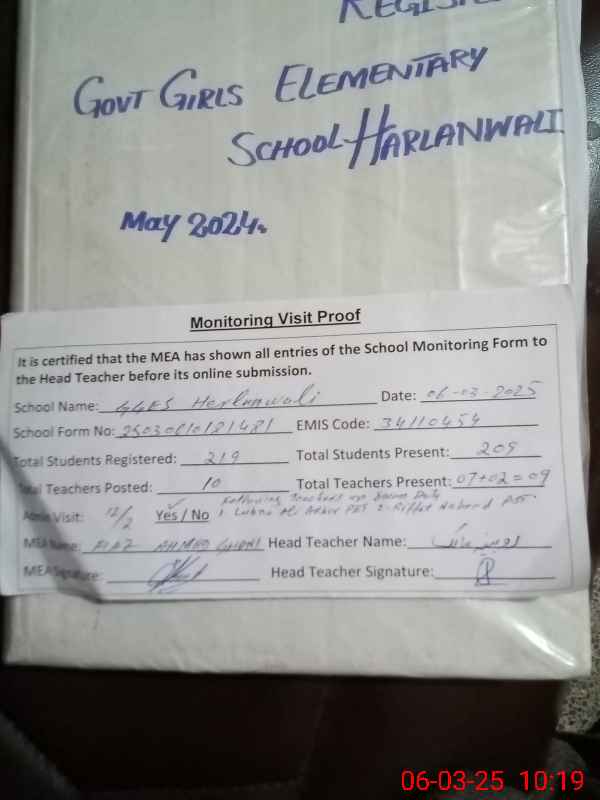 REGIS
GOVT GIRLS ELEMENTARY
SCHOOL HARLANWALI
May 2024.
Monitoring Visit Proof
It is certified that the MEA has shown all entries of the School Monitoring Form to
the Head Teacher before its online submission.
School Name: GGES Harlanwali Date: 06-03-2025
School Form No: EMIS Code: 34110454
Total Students Registered: 219 Total Students Present: 209
Total Teachers Posted: 10 Total Teachers Present: 07+02=09
Admin Visit: 12/2 Yes / No Following Teachers
MEA Name: AHMED Head Teacher Name:
MEA Signature: Head Teacher Signature:
06-03-25 10:19